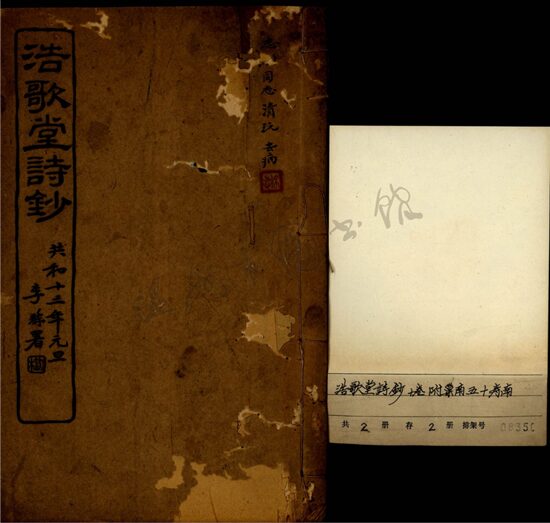 浩歌堂詩鈔
共和十二年元旦
李
署
同志清玩
去病
书馆
浩歌堂詩鈔 十卷 附
五十
共 2 册 存 2 册 排架号 08350